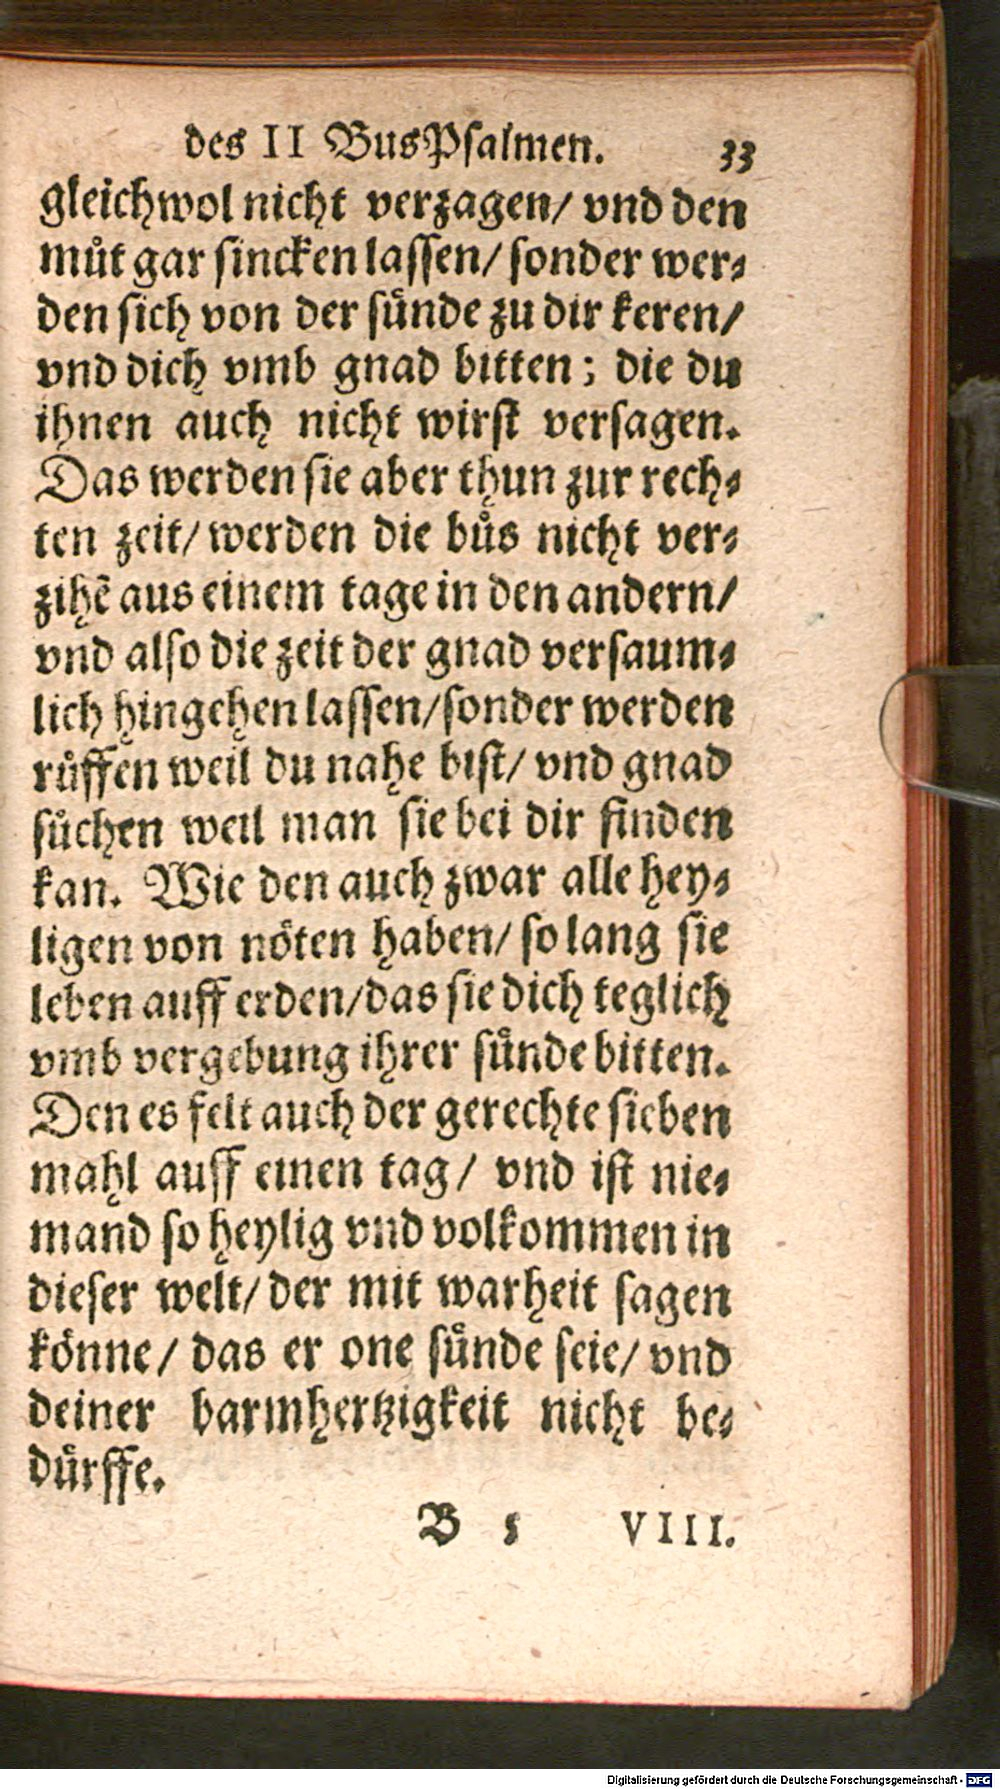 des II BusPsalmen. 33
gleichwol nicht verzagen/ vnd den
muͦt gar sincken lassen/ sonder wer⸗
den sich von der suͤnde zu dir keren/
vnd dich vmb gnad bitten; die du
ihnen auch nicht wirst versagen.
Das werden sie aber thun zur rech⸗
ten zeit/ werden die buͦs nicht ver⸗
zihē aus einem tage in den andern/
vnd also die zeit der gnad versaum⸗
lich hingehen lassen/sonder werden
ruͦffen weil du nahe bist/ vnd gnad
suͦchen weil man sie bei dir finden
kan. Wie den auch zwar alle hey⸗
ligen von noͤten haben/ so lang sie
leben auff erden/das sie dich teglich
vmb vergebung ihrer suͤnde bitten.
Den es felt auch der gerechte sieben
mahl auff einen tag/ vnd ist nie⸗
mand so heylig vnd volkommen in
dieser welt/ der mit warheit sagen
koͤnne/ das er one suͤnde seie/ vnd
deiner barmhertzigkeit nicht be⸗
duͤrffe.
B 5 VIII.
Digitalisierung gefördert durch die Deutsche Forschungsgemeinschaft - DFG